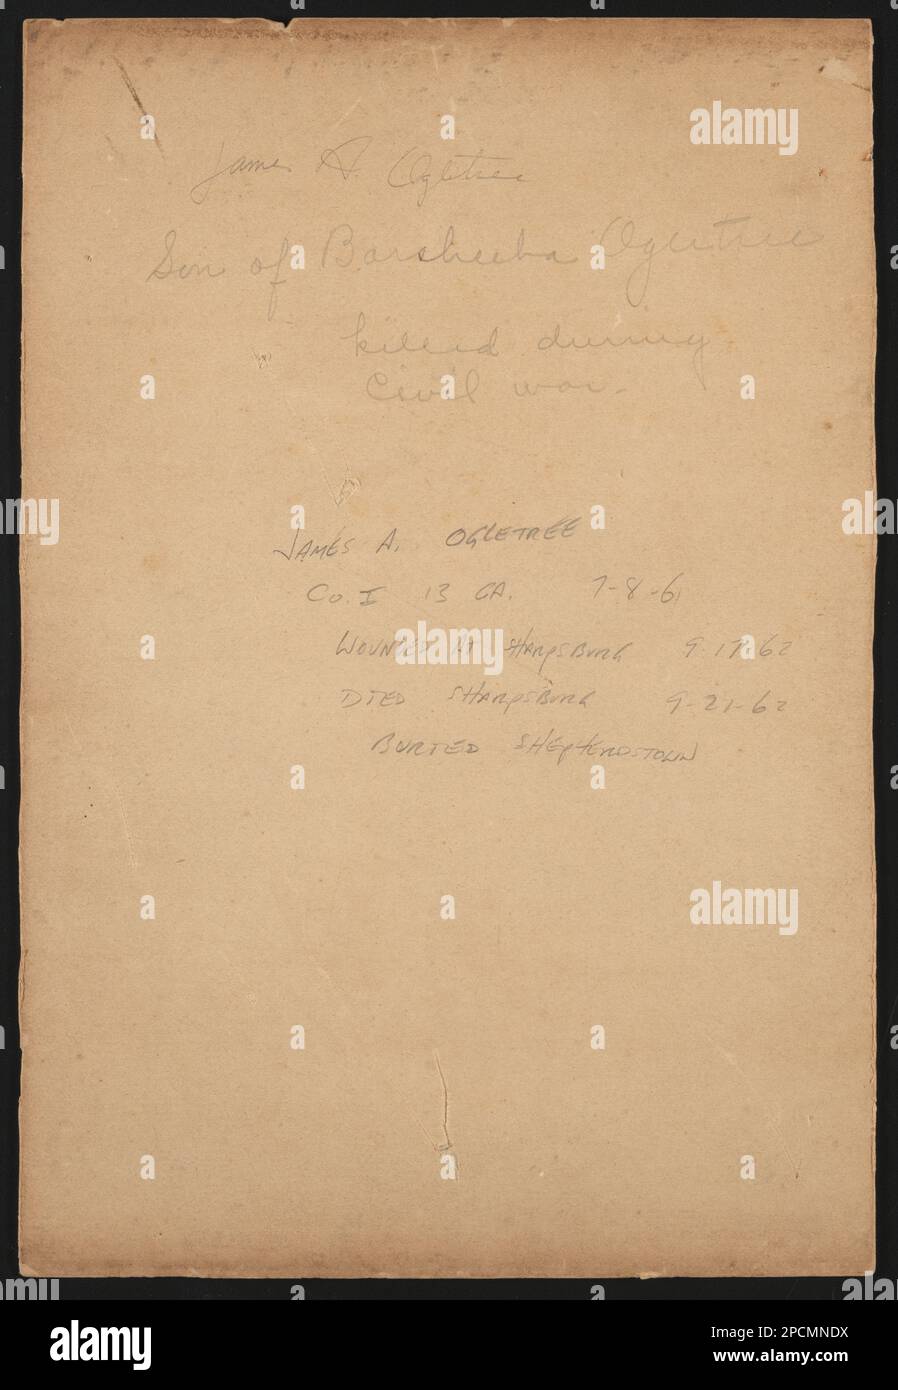 James A. Ogletree
Son of Barsheeba Ogletree
killed during
Civil war.
JAMES A. OGLETREE
Co. I 13 GA. 7-8-61
WOUNDED AT SHARPSBURG 9-17-62
DIED SHARPSBURG 9-21-62
BURIED SHEPHERDSTOWN
alamy
alamy
a
alamy
Image ID: 2PCMNDX
www.alamy.com